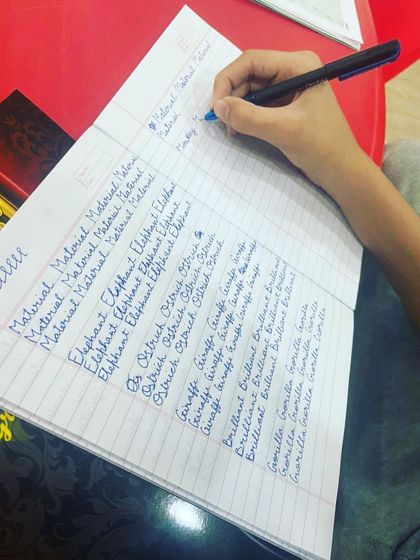 Material Material Material Material
Material Material Material Material
Material Material Material Material
Elephant Elephant Elephant Elephant
Elephant Elephant Elephant Elephant
Elephant Elephant Elephant Elephant
Ostrich Ostrich Ostrich
Ostrich Ostrich Ostrich Ostrich
Ostrich Ostrich Ostrich Ostrich
Giraffe Giraffe Giraffe Giraffe
Giraffe Giraffe Giraffe Giraffe
Giraffe Giraffe Giraffe Giraffe
Brilliant Brilliant Brilliant Brilliant
Brilliant Brilliant Brilliant Brilliant
Brilliant Brilliant Brilliant Brilliant
Gorilla Gorilla Gorilla Gorilla
Gorilla Gorilla Gorilla Gorilla
Gorilla Gorilla Gorilla Gorilla
Material Material Material
Material
Monkey M